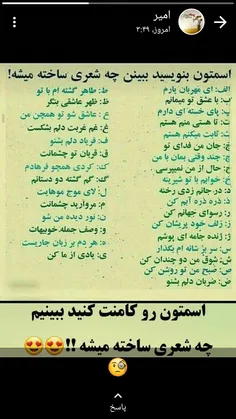 امیر
امروز، ۳:۴۹
اسمتون بنویسید ببینن چه شعری ساخته میشه!
الف: ای مهربان یارم
ب: با عشق تو میمانم
پ: پای خسته ای دارم
ت: تا هستی منم هستم
ث: ثابت میکنم هستم
ج: جان من فدای تو
چ: چند وقتی بمان با من
ح: حال از من نمیپرسی
خ: خوابم با تو شیرینه
د: در جانم زدی رخنه
ذ: ذره ذره آبم کن
ر: رسوای جهانم کن
ز: زلف خود پریشان کن
ژ: ژنده جامه ای پوشم
س: سر بژ شانه ام بگذار
ش: شوق من دو چندان کن
ص: صبح من تو روشن کن
ض: ضربان دلم بشنو
ط: طاهر گشته ام با تو
ظ: ظهر عاشقی بنگر
ع: عاشق شو تو همچن من
غ: غم غربت دلم بشکست
ف: فریاد دلم بشنو
ق: قربان تو چشمانت
ک: کردی همچو فرهادم
گ: گم گشته دو دستانم
ل: لای موج موهایت
م: مروارید چشمانت
ن: نور دیده من شو
و: وصف جمله خوبیهات
ه: هر دم بر زبان جاریست
ی: یادی از ما کن
اسمتون رو کامنت کنید ببینیم
چه شعری ساخته میشه !!😍😍
🧐
پاسخ